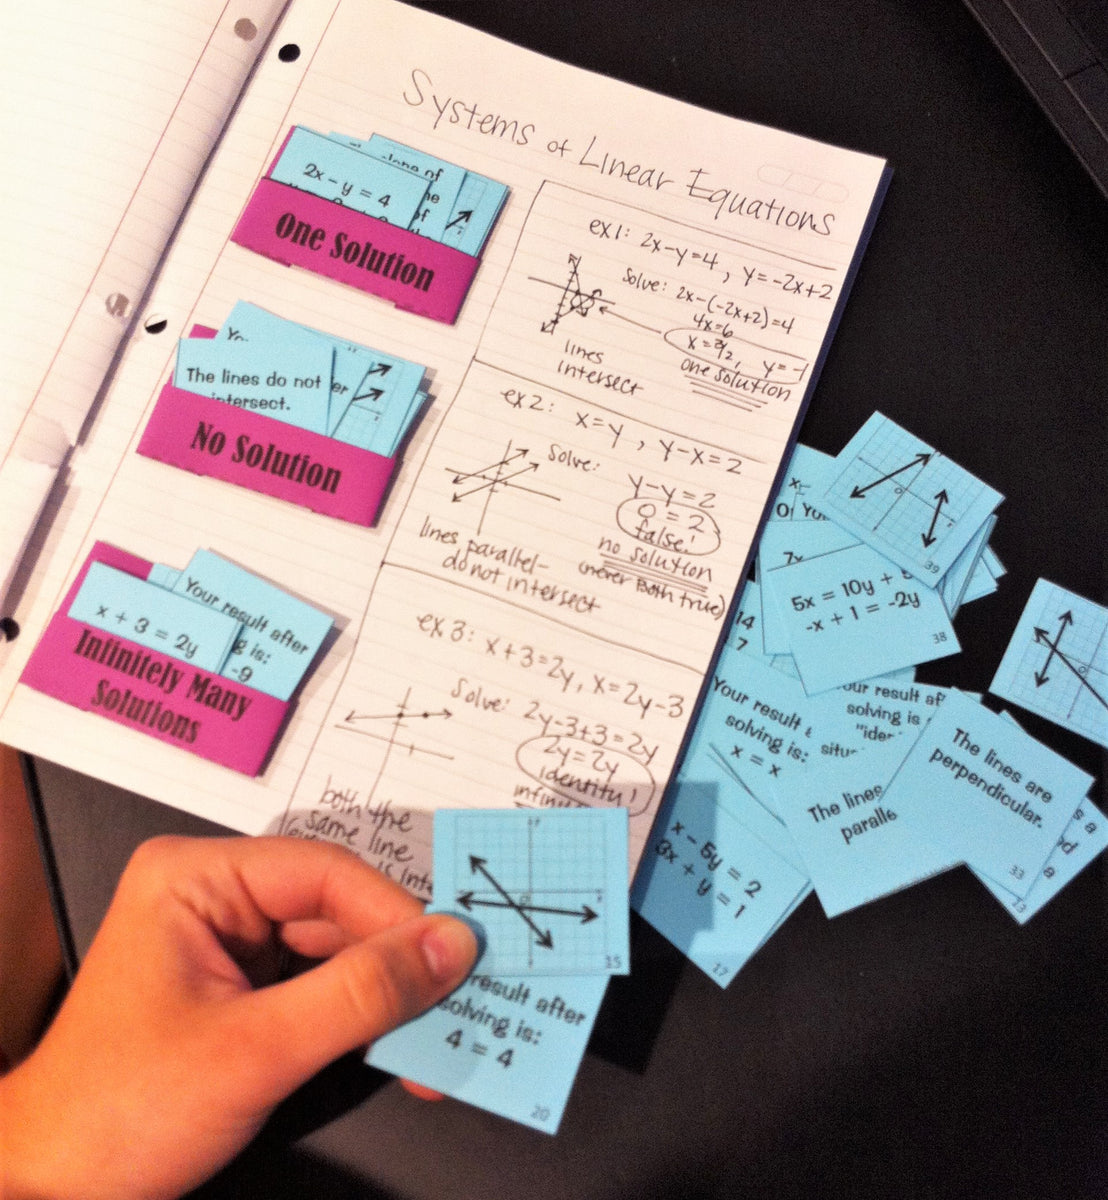 Systems of Linear Equations
2x - y = 4
One Solution
The lines do not
intersect.
No Solution
Your result after
g is:
-9
x + 3 = 2y
Infinitely Many
Solutions
ex1: 2x-y=4, y=-2x+2
Solve: 2x-(-2x+2)=4
4x=6
x=3/2, y=-1
one solution
lines
intersect
ex2: x=y, y-x=2
Solve: y-y=2
0=2
false!
no solution
(never both true)
lines parallel-
do not intersect
ex3: x+3=2y, x=2y-3
Solve: 2y-3+3=2y
2y=2y
identity!
both the
same line
39
5x = 10y +
-x + 1 = -2y
38
14
7
Your result
solving is:
x = x
our result af
solving is
The lines
The lines are
perpendicular.
33
13
x - 5y = 2
3x + y = 1
17
15
result after
solving is:
4 = 4
20